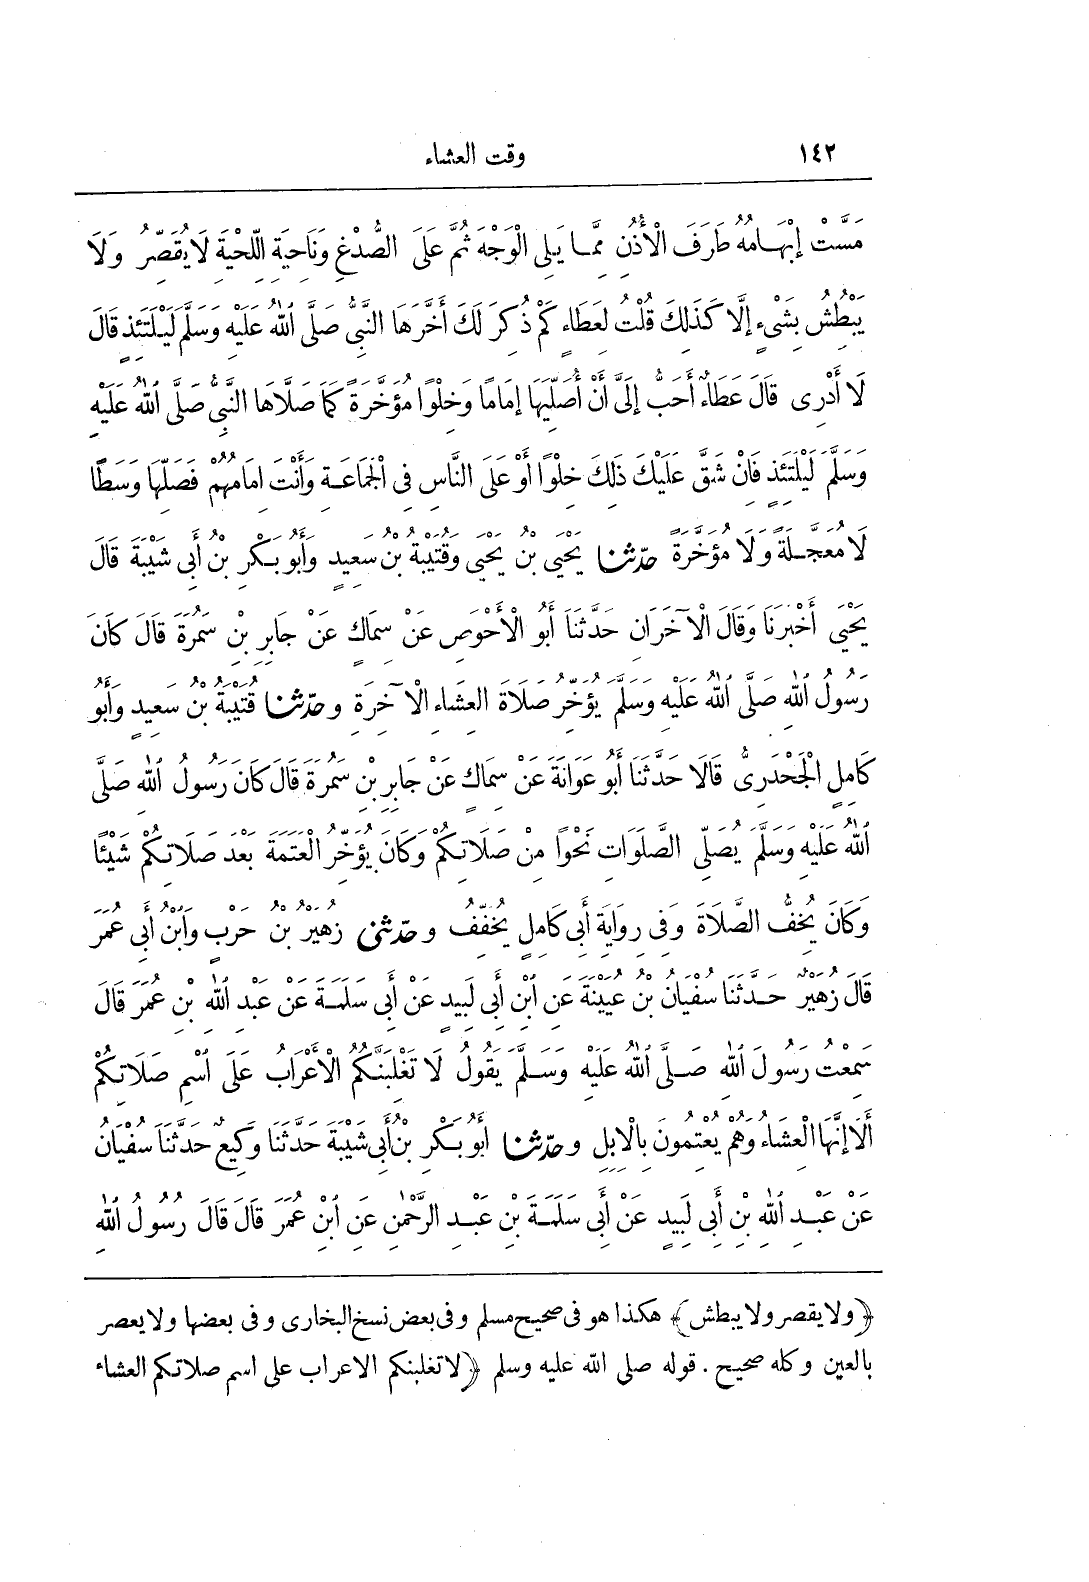 ١٤٢ وقت العشاء
مَسَّتْ إِبْهَامُهُ طَرَفَ الْأُذُنِ مِمَّا يَلِى الْوَجْهَ ثُمَّ عَلَى الصُّدْغِ وَنَاحِيَةِ اللِّحْيَةِ لَا يُقَصِّرُ وَلَا
يَبْطُشُ بِشَىْءٍ إِلَّا كَذَلِكَ قُلْتُ لِعَطَاءٍ كَمْ ذُكِرَ لَكَ أَخَّرَهَا النَّبِىُّ صَلَّى اللهُ عَلَيْهِ وَسَلَّمَ لَيْلَتَئِذٍ قَالَ
لَا أَدْرِى قَالَ عَطَاءٌ أَحَبُّ إِلَىَّ أَنْ أُصَلِّيَهَا إِمَامًا وَخِلْوًا مُؤَخَّرَةً كَمَا صَلَّاهَا النَّبِىُّ صَلَّى اللهُ عَلَيْهِ
وَسَلَّمَ لَيْلَتَئِذٍ فَانْ شَقَّ عَلَيْكَ ذَلِكَ خِلْوًا أَوْ عَلَى النَّاسِ فِى الْجَمَاعَةِ وَأَنْتَ امَامُهُمْ فَصَلِّهَا وَسَطًا
لَا مُعَجَّلَةً وَلَا مُؤَخَّرَةً حدّثنا يَحْيَى بْنُ يَحْيَى وَقُتَيْبَةُ بْنُ سَعِيدٍ وَأَبُو بَكْرِ بْنُ أَبِى شَيْبَةَ قَالَ
يَحْيَى أَخْبَرَنَا وَقَالَ الْآخَرَانِ حَدَّثَنَا أَبُو الْأَحْوَصِ عَنْ سِمَاكٍ عَنْ جَابِرِ بْنِ سَمُرَةَ قَالَ كَانَ
رَسُولُ اللهِ صَلَّى اللهُ عَلَيْهِ وَسَلَّمَ يُؤَخِّرُ صَلَاةَ الْعِشَاءِ الْآخِرَةِ و حدّثنا قُتَيْبَةُ بْنُ سَعِيدٍ وَأَبُو
كَامِلٍ الْجَحْدَرِىُّ قَالَا حَدَّثَنَا أَبُو عَوَانَةَ عَنْ سِمَاكٍ عَنْ جَابِرِ بْنِ سَمُرَةَ قَالَ كَانَ رَسُولُ اللهِ صَلَّى
اللهُ عَلَيْهِ وَسَلَّمَ يُصَلِّى الصَّلَوَاتِ نَحْوًا مِنْ صَلَاتِكُمْ وَكَانَ يُؤَخِّرُ الْعَتَمَةَ بَعْدَ صَلَاتِكُمْ شَيْئًا
وَكَانَ يُخِفُّ الصَّلَاةَ وَفِى رِوَايَةِ أَبِى كَامِلٍ يُخَفِّفُ و حدّثنى زُهَيْرُ بْنُ حَرْبٍ وَابْنُ أَبِى عُمَرَ
قَالَ زُهَيْرٌ حَدَّثَنَا سُفْيَانُ بْنُ عُيَيْنَةَ عَنِ ابْنِ أَبِى لَبِيدٍ عَنْ أَبِى سَلَمَةَ عَنْ عَبْدِ اللهِ بْنِ عُمَرَ قَالَ
سَمِعْتُ رَسُولَ اللهِ صَلَّى اللهُ عَلَيْهِ وَسَلَّمَ يَقُولُ لَا تَغْلِبَنَّكُمُ الْأَعْرَابُ عَلَى اسْمِ صَلَاتِكُمْ
أَلَا إِنَّهَا الْعِشَاءُ وَهُمْ يُعْتِمُونَ بِالْإِبِلِ و حدّثنا أَبُو بَكْرِ بْنُ أَبِى شَيْبَةَ حَدَّثَنَا وَكِيعٌ حَدَّثَنَا سُفْيَانُ
عَنْ عَبْدِ اللهِ بْنِ أَبِى لَبِيدٍ عَنْ أَبِى سَلَمَةَ بْنِ عَبْدِ الرَّحْمَنِ عَنِ ابْنِ عُمَرَ قَالَ قَالَ رَسُولُ اللهِ
﴿ولا يقصر ولا يبطش﴾ هكذا هو فى صحيح مسلم وفى بعض نسخ البخارى وفى بعضها ولا يعصر
بالعين وكله صحيح . قوله صلى الله عليه وسلم ﴿لا تغلبنكم الاعراب على اسم صلاتكم العشاء